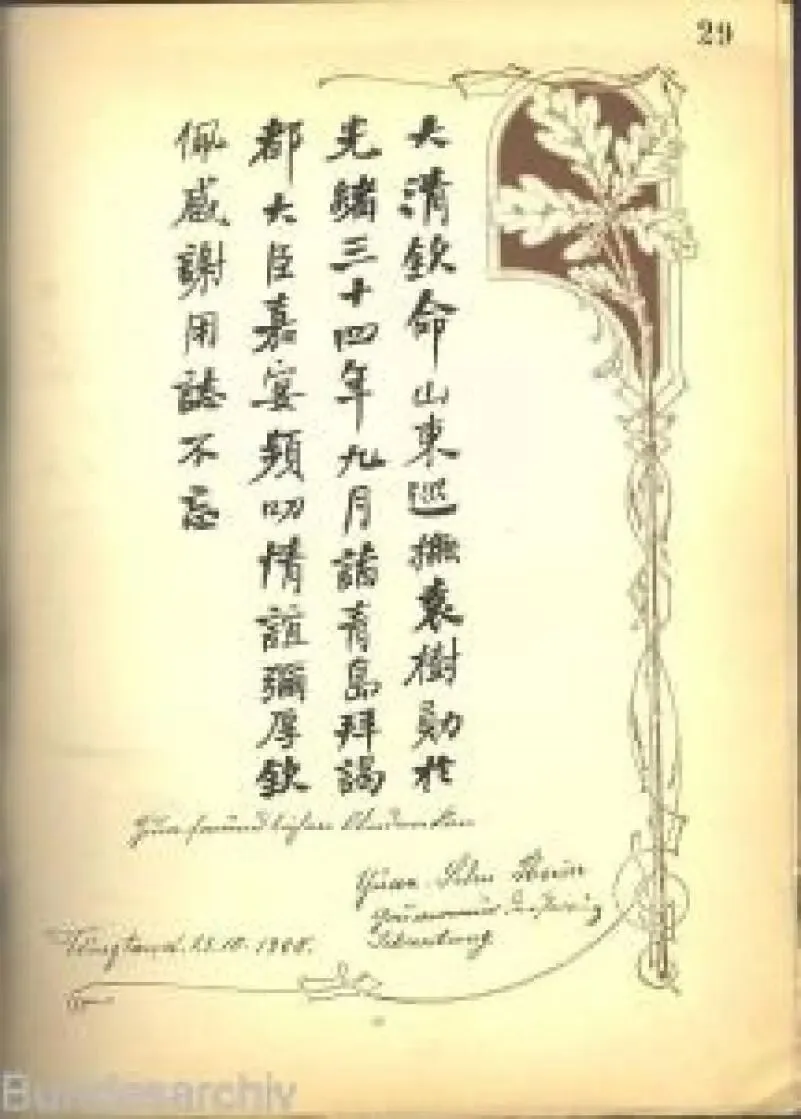 29
大清欽命山東巡撫袁樹勛於
光緒三十四年九月諸青島拜謁
都大臣嘉宴頻叨情誼彌厚欽
佩感謝用誌不忘
Zum freundlichen Andenken
Yuan Schu Hsün
Gouverneur der Provinz
Schantung
Tsingtau d. 15.10.1908.
Bundesarchiv